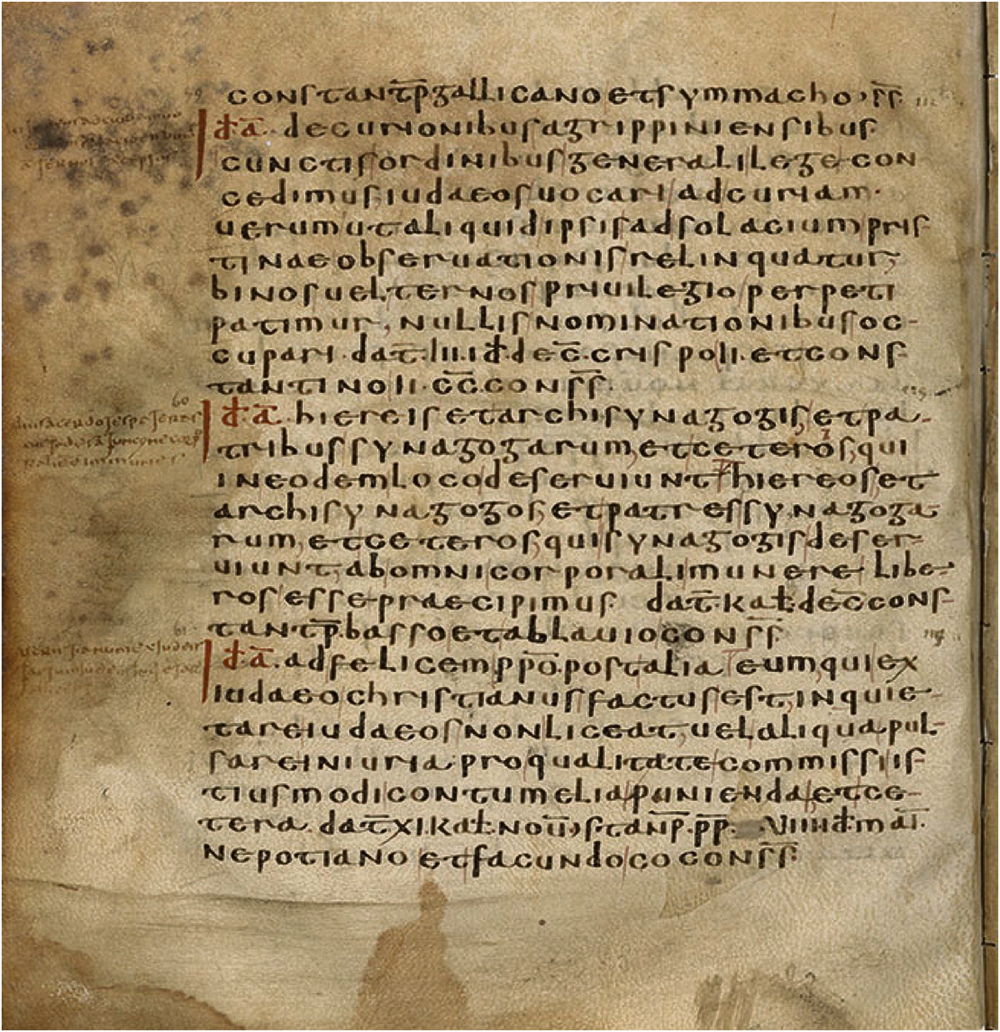 constantp̄gallicanoetsymmacho·s̄s̄
ið·ā·decurionibusagrippiniensibus
cunctisordinibusgeneralilegecon
cedimusiudaeosuocariadcuriam·
uerumutaliquidipsisadsolaciumpris
tinaeobseruationisrelinquatur,
binosuelternospriuilegioperpeti
patimur,nullisnominationibusoc-
cupari·dat̄·iii·id̄·dec̄·crispoii·etcons
tantinoii·c̄c̄cons̄s̄·
60
ið·ā·hiereisetarchisynagogisetpa-
tribussynagogarum,etceterosqui
ineodemlocodeseruiunthiereoset
archisynagogos,etpatressynagoga
rum,etceterosquisynagogisdeser-
uiunt,abomnicorporalimunerelibe-
rosessepraecipimus dat̄·kal̄·dec̄cons-
tantp̄·bassoetablauiocons̄s̄
61
ið·ā·adfelicemp̄pō·postaliaeumquiex
iudaeochristianusfactusest,inquie-
tareiudaeosnonliceat,uelaliquapul-
sareiniuria·proqualitatecommissiis
tiusmodicontumeliapuniendaetce-
tera·dat̄xikal̄·nou·,stanp̄·p̄p̄· uiiid̄·māi·
nepotianoetfacundococons̄s̄